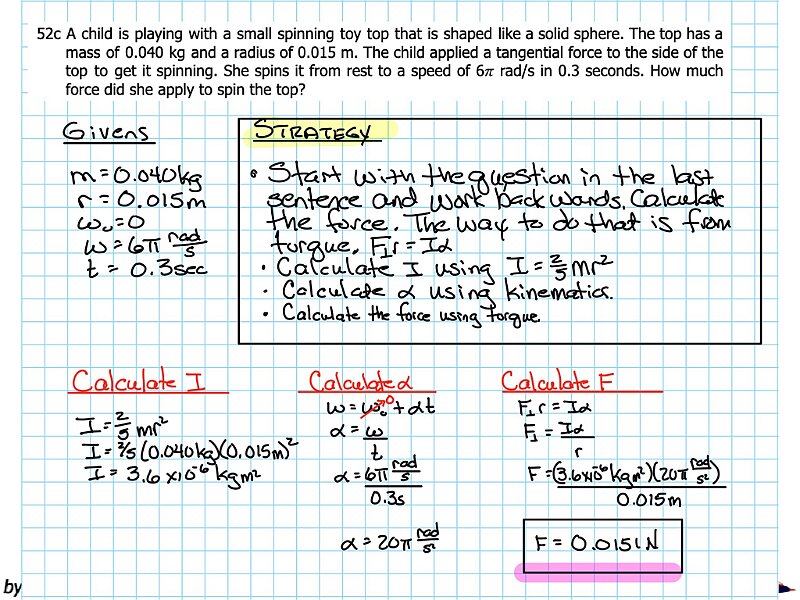 52c A child is playing with a small spinning toy top that is shaped like a solid sphere. The top has a
mass of 0.040 kg and a radius of 0.015 m. The child applied a tangential force to the side of the
top to get it spinning. She spins it from rest to a speed of 6π rad/s in 0.3 seconds. How much
force did she apply to spin the top?
Givens
m = 0.040kg
r = 0.015m
ω₀ = 0
ω = 6π rad/s
t = 0.3sec
STRATEGY
• Start with the question in the last
sentence and work backwards. Calculate
the force. The way to do that is from
torque. F⊥r = Iα
• Calculate I using I = 2/5 mr²
• Calculate α using kinematics.
• Calculate the force using torque.
Calculate I
I = 2/5 mr²
I = 2/5 (0.040kg)(0.015m)²
I = 3.6 x10⁻⁶ kgm²
Calculate α
ω = ω₀ + αt
0
α = ω/t
α = 6π rad/s / 0.3s
α = 20π rad/s²
Calculate F
F⊥r = Iα
F⊥ = Iα/r
F = (3.6x10⁻⁶ kgm²)(20π rad/s²) / 0.015m
F = 0.0151N
by